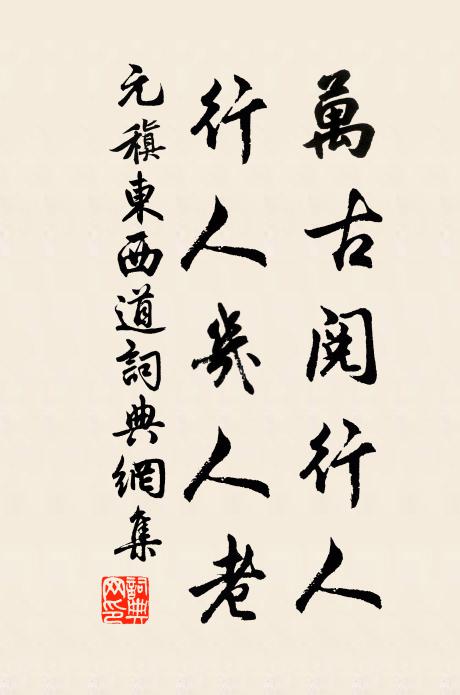 萬古閱行人
行人幾人老
元稹東西道詞典網集
詞典網印